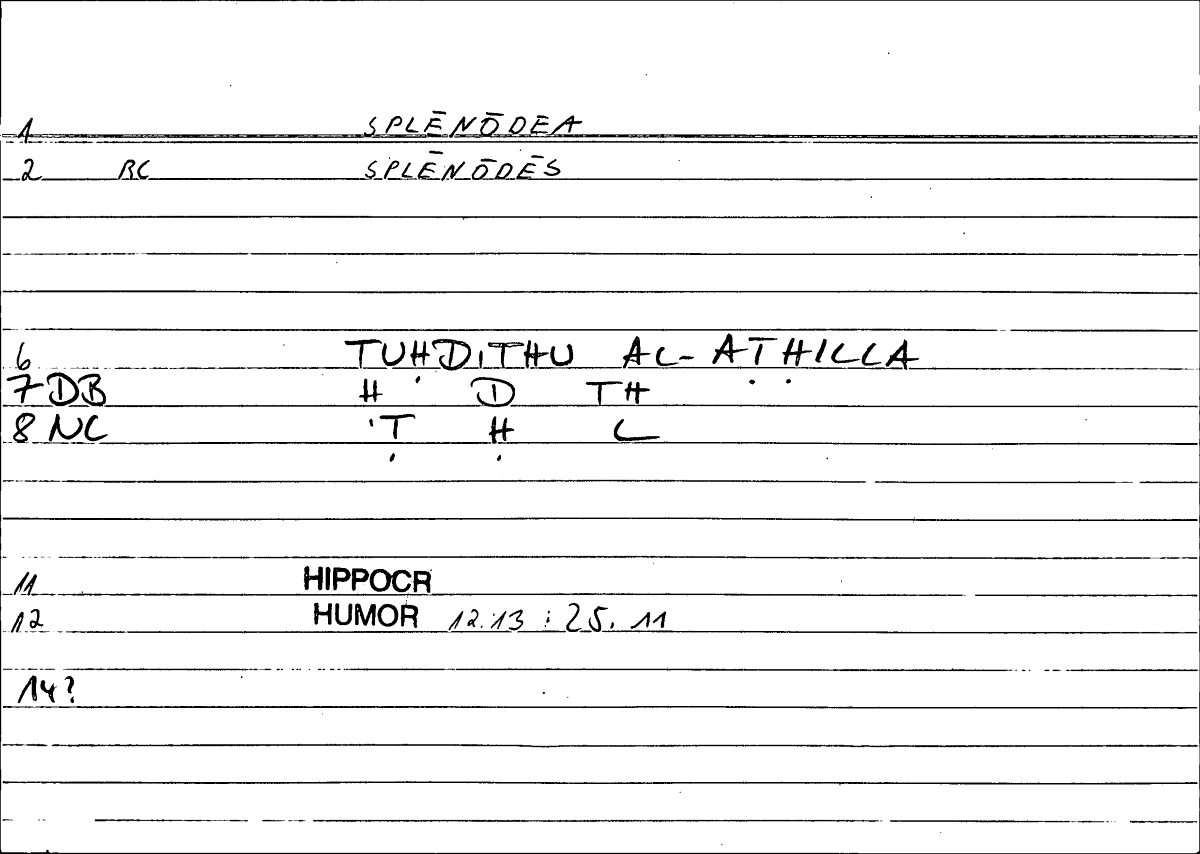 1 SPLĒNŌDEA
2 RC SPLĒNŌDĒS
6 TUḤDITHU AL-AṬḤILLA
7 DB H D TH
8 NC 'Ṭ Ḥ L
11 HIPPOCR
12 HUMOR 12.13 : 25. 11
14?